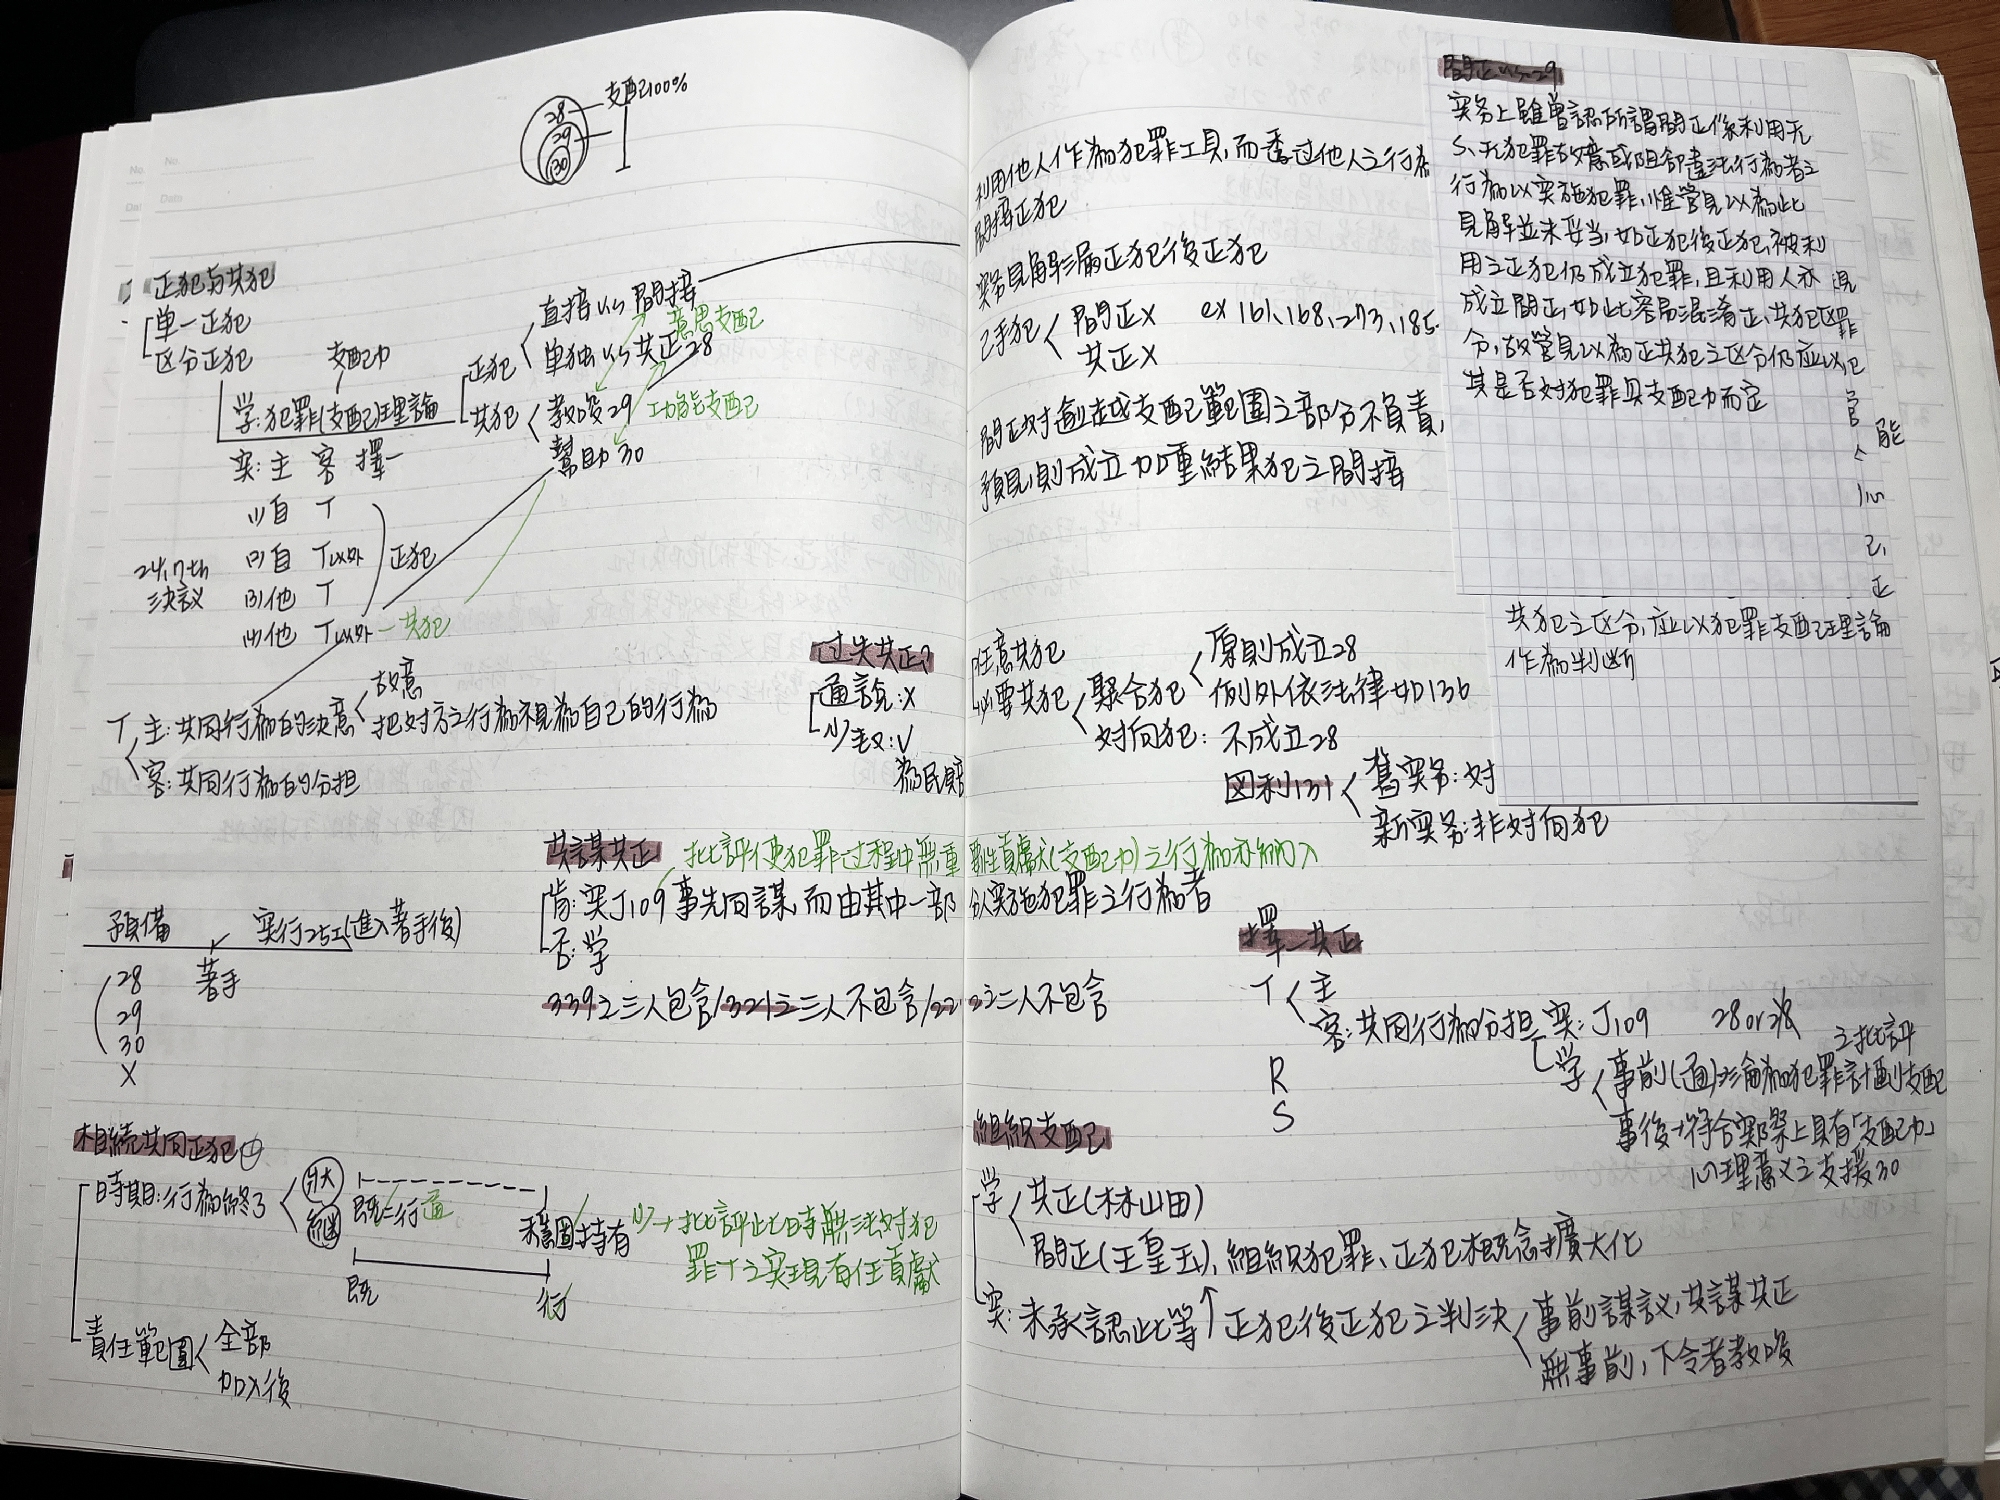 28
29
30
支配100%
正犯与共犯
单一正犯
区分正犯
支配力
学:犯罪(支配)理論
正犯
直接 vs 間接
意思支配
单独 vs 共正28
共犯
教唆29
功能支配
幫助30
实:主 客 擇一
24.7th
決議
(1)自 T
(2)自 T以外
(3)他 T
(4)他 T以外
正犯
共犯
T
主:共同行為的決意
故意
把对方之行為視為自己的行為
客:共同行為的分担
过失共正?
通說:X
少数:V
為民賠
共謀共正
批評使犯罪过程中無重要性貢獻(支配力)之行為亦納入
肯:实J109 事先同謀,而由其中一部分实施犯罪之行為者
否:学
339之三人包含/321之三人不包含/222之二人不包含
預備
着手
实行25I(進入著手後)
28
29
30
X
相続共同正犯
時期:行為終了
狀
繼
既=行 通
穩固持有
少→批評此時無法对犯
罪T之实現有任貢獻
既
行
責任範圍
全部
加入後
利用他人作為犯罪工具,而透过他人之行為
間接正犯
实务見解漏正犯後正犯
己手犯
間正X
共正X
ex 161、168、273、185.
間正对逾越支配範圍之部分不負責,
預見,則成立加重結果犯之間接
間正vs29
实务上雖曾認所謂間正係利用无
S、无犯罪故意或阻卻違法行為者之
行為以实施犯罪,惟管見以為此
見解並未妥当,如正犯後正犯,被利
用之正犯仍成立犯罪,且利用人亦
成立間正,如此容易混淆正、共犯区
分,故管見以為正共犯之区分仍应以
其是否对犯罪具支配力而定
共犯之区分,应以犯罪支配理論
作為判斷
任意共犯
必要共犯
聚合犯
原則成立28
例外依法律如136
对向犯:不成立28
図利131
舊实务:对
新实务:非对向犯
擇一共正
T
主
客:共同行為分担
实:J109 28
学
之批評
事前(通)⇒淪為犯罪計劃支配
事後→符合实際上具有「支配力」
心理意义之支援30
R
S
組織支配
学
共正(林山田)
間正(王皇玉),組織犯罪、正犯概念擴大化
实:未承認此等↑正犯後正犯之判決
事前謀議,共謀共正
無事前,下令者教唆